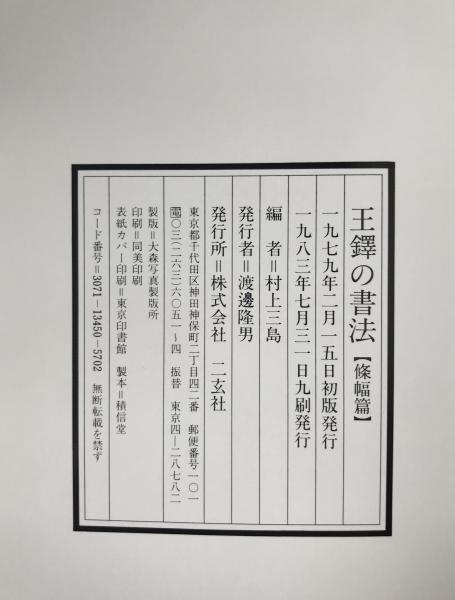 王鐸の書法【條幅篇】
一九七九年二月一五日初版発行
一九八三年七月三一日九刷発行
編　者＝村上三島
発行者＝渡邊隆男
発行所＝株式会社　二玄社
東京都千代田区神田神保町二丁目四二番　郵便番号一〇一
電〇三(二六三)六〇五一〜四　振替　東京四―二八七八二
製版＝大森写真製版所
印刷＝同美印刷
表紙カバー印刷＝東京印書館　製本＝積信堂
コード番号＝3071－13450－5702　無断転載を禁ず